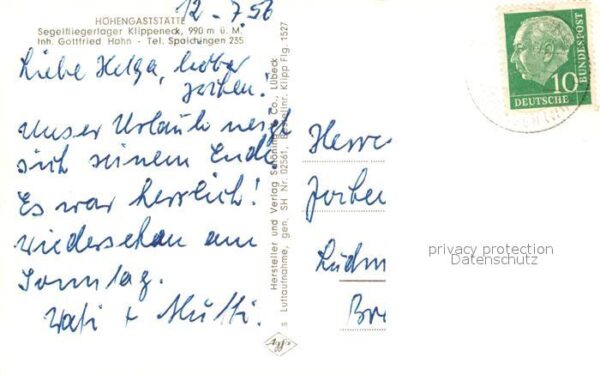 12.7.56
HÖHENGASTSTÄTTE
Segelfliegerlager Klippeneck, 990 m ü. M.
Inh. Gottfried Hahn - Tel. Spaichingen 235
Liebe Helga, lieber
Jochen!
Unser Urlaub neigt
sich seinem Ende
Es war herrlich!
Wiedersehen am
Sonntag.
Vati + Mutti.
Hersteller und Verlag Schöning & Co., Lübeck
s Luftaufnahme, gen. SH Nr 02561, Bestellnr. Klipp Flg. 1527
10
DEUTSCHE
BUNDESPOST
Herrn
privacy protection
Datenschutz